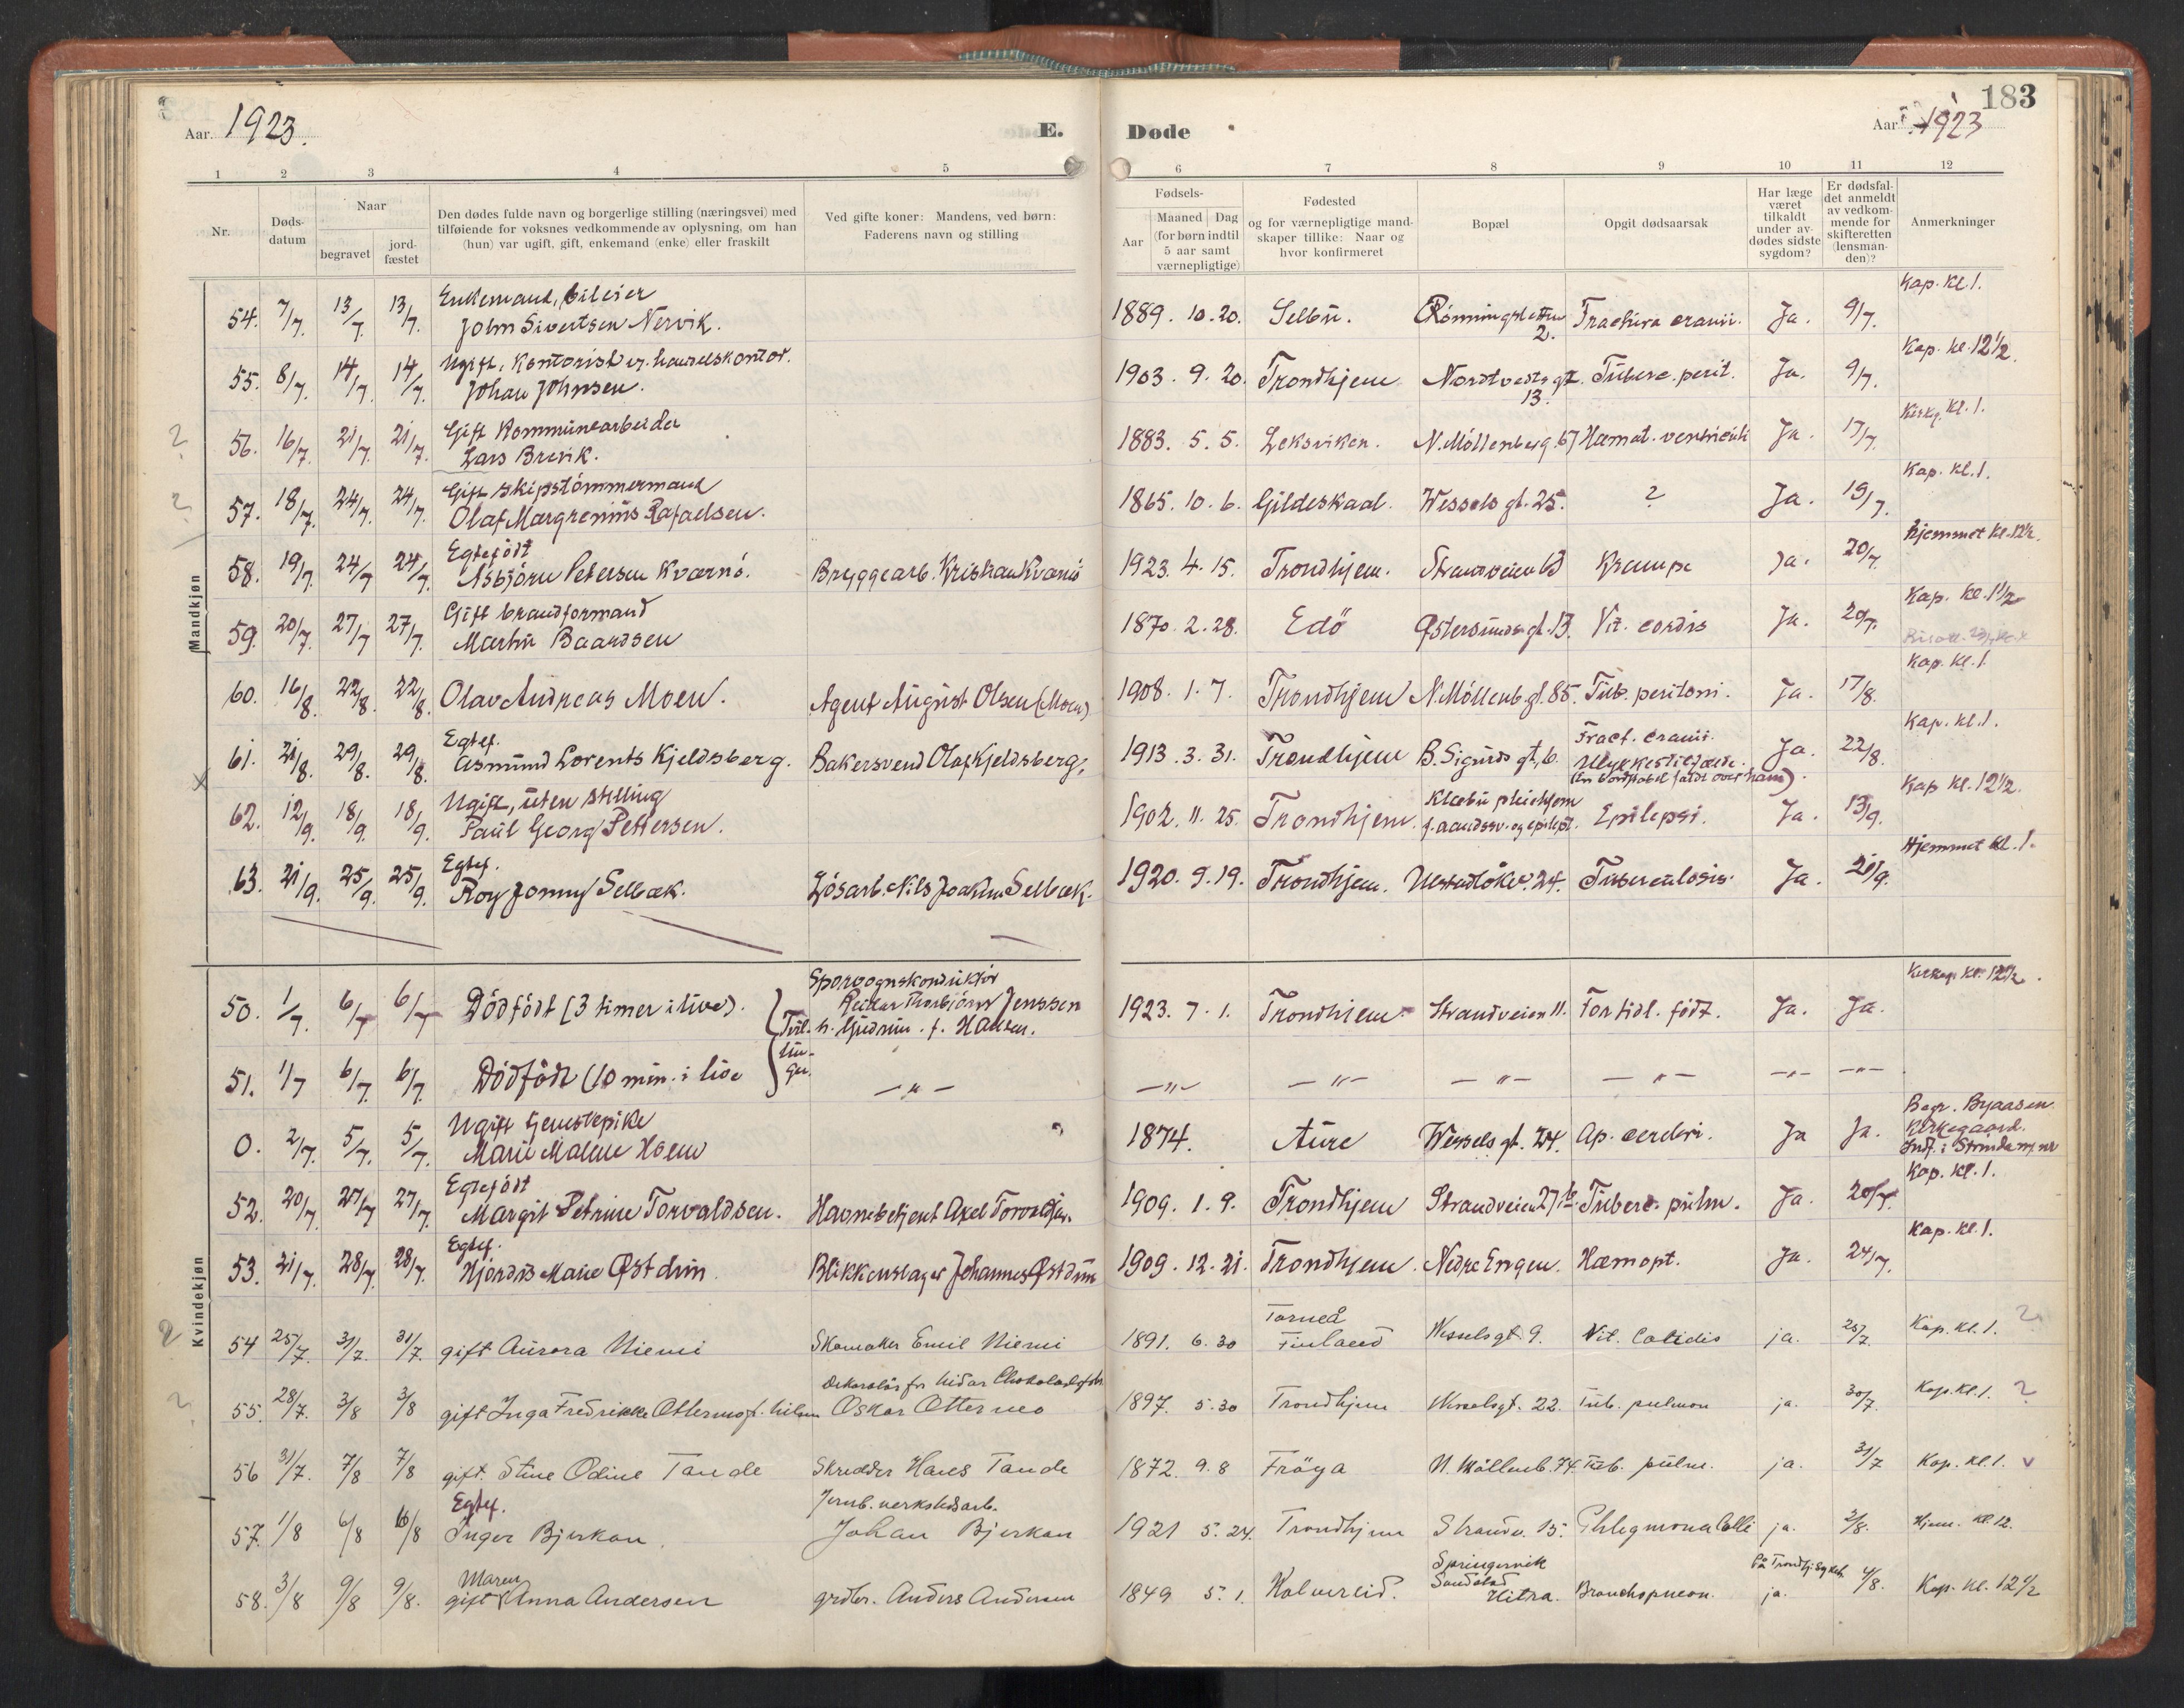 183
Aar 1923.
E.
Døde
Aar 1923
1 2 3 4 5 6 7 8 9 10 11 12
Nr.
Døds-
datum
Naar
begravet
jord-
fæstet
Den dødes fulde navn og borgerlige stilling (næringsvei) med
tilføiende for voksnes vedkommende av oplysning, om han
(hun) var ugift, gift, enkemand (enke) eller fraskilt
Ved gifte koner: Mandens, ved børn:
Faderens navn og stilling
Fødsels-
Aar
Maaned Dag
(for børn indtil
5 aar samt
værnepligtige)
Fødested
og for værnepligtige mand-
skaper tillike: Naar og
hvor konfirmeret
Bopæl
Opgit dødsaarsak
Har læge
været
tilkaldt
under av-
dødes sidste
sygdom?
Er dødsfal-
det anmeldt
av vedkom-
mende for
skifteretten
(lensman-
den)?
Anmerkninger
Mandkjøn
Enkemand, bileier Kap. kl. 1.
54. 7/7. 13/7. 13/7. John Sivertsen Nervik. 1889. 10. 20. Selbu. Rønningsletten 2. Fractura cranii. Ja. 9/7.
Ugift, Kontorist v. handelskontor. Kap. kl. 12 1/2.
55. 8/7. 14/7. 14/7. Johan Johnsen. 1903. 9. 20. Trondhjem Nordtvedts gt. 13. Tuberc. perit. Ja. 9/7.
Gift Kommunearbeider kl. 1.
? 56. 16/7. 21/7. 21/7. Lars Brevik. 1883. 5. 5. Leksviken. N. Möllenberg. 67 Hæmat. ventriculi Ja. 17/7.
Gift skipstömmermand Kap. kl. 1.
? 57. 18/7. 24/7. 24/7. Olaf Margrenius Rafaelsen. 1865. 10. 6. Gildeskaal. Wessels gt. 25. ? Ja. 19/7.
Egtefödt Hjemmet kl. 12 1/2.
58. 19/7. 24/7 24/7. Asbjörn Petersen Kvarnö. Bryggearb. Kristian Kvarnö 1923. 4. 15. Trondhjem. Strandveien Krampe Ja. 20/7.
Gift brandformand Kap. kl. 1 1/2
59. 20/7. 27/7 27/7. Martin Baardsen 1870. 2. 28. Edö Østersunds gt. 13. Vit. cordis Ja. 20/7.
Kap. kl. 1.
60. 16/8. 22/8. 22/8. Olav Andreas Moen. Agent August Olsen (Moen) 1908. 1. 7. Trondhjem N. Möllenb. gt. 85. Tub. peritoni. Ja. 17/8.
Egtef. Fract. cranii. Kap. kl. 1.
61. 21/8. 29/8. 29/8. Asmund Lorents Kjeldsberg. Bakersvend Olaf Kjeldsberg, 1913. 3. 31. Trondhjem B. Sigurds gt. 6. Ulykkestilfælde. Ja. 22/8.
x faldt over ham).
Ugift, uten stilling Klæbu pleiehjem Kap kl. 12 1/2.
62. 12/9. 18/9. 18/9. Paul Georg Pettersen. 1902. 11. 25. Trondhjem. f. aandssv. og epilept. Epilepsi. Ja. 13/9.
Egtef. Hjemmet kl. 1.
63. 21/9. 25/9. 25/9. Roy Jonny Selbæk. Løsarb. Nils Joakim Selbæk. 1920. 9. 19. Trondhjem. Ulstadløkv. 24. Tuberculosis. Ja. 21/9.
Kvindekjøn
Sporvognskonduktör
50. 1/7. 6/7 6/7 Dödfödt (3 timer i live). Reidar Thorbjörn Jenssen 1923. 7. 1. Trondhjem. Strandveien 11. For tidl. födt. Ja. Ja.
Tvil- h. Gudrun f. Hansen.
lin-
51. 1/7 6/7. 6/7. Dödfödt (10 min. i live ger. — " — — " — — " — — " — — " — — " — — " —
Ugift Begr. Byaasen
0. 2/7. 5/7. 5/7. Marie Malene Hoem 1874. Aure Wessels gt. 24. Ap. cerebri. Ja Ja. Kirkegaard.
Indf. i Strinda
Egtefödt Kap. kl. 1.
52. 20/7. 27/7 27/7. Margit Petrine Torvaldsen. Havnebetjent Axel Torvaldsen. 1909. 1. 9. Trondhjem Strandveien 27 Tuberc. pulm. Ja. 20/7.
Egtef. Kap. kl. 1.
53. 21/7. 28/7. 28/7. Hjördis Marie Østdun. Blikkenslager Johannes Østdun 1909. 12. 21. Trondhjem. Nedre Engen. Hæmopt. Ja. 24/7.
Torneå
? 54 25/7. 31/7. 31/7. gift Aurora Niemi Skomaker Emil Niemi 1891. 6. 30 Finland Wesselsgt. 9. Vit. Calidis ja. 25/7. Kap. kl. 1. ?
Nidar Chokoladefbr.
? 55. 28/7. 3/8 3/8 gift Inga Fredrikke Ottermo f. Nilsen Oskar Ottermo 1897. 5. 30 Trondhjem Wesselsgt. 22. Tub. pulmon ja. 30/7. Kap. kl. 1. ?
56 31/7. 7/8 7/8 gift. Stine Odine Tande Skredder Hans Tande 1872. 9. 8 Fröya N. Möllenb. 74 Tub. pulm. ja. 31/7 Kap. kl. 1. v
Egtef. Jernb. verkstedsarb.
57. 1/8 6/8 6/8 Inger Bjerkan. Johan Bjerkan 1921 5. 24. Trondhjem Strandv. 15. Phlegmona Colli ja. 2/8. Hjem. kl. 12.
Maren Springervik På Trondhj. Sykeh.
Sandstad
58. 3/8 9/8 9/8. gift Anna Andersen grdbr. Anders Andersen 1849 5. 1. Kalvereid. Hitra. Bronchopneon. ja. 4/8. Kap. kl. 12 1/2